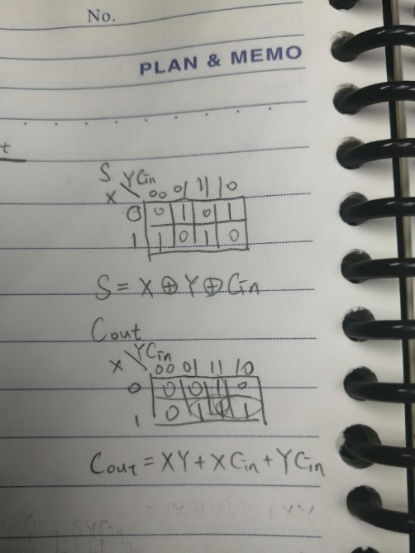 No.
PLAN & MEMO
t
S YCin
X 00 01 11 10
0 0 1 0 1
1 1 0 1 0
S = X ⊕ Y ⊕ Cin
Cout
YCin
X 00 01 11 10
0 0 0 1 0
1 0 1 1 1
Cout = XY + XCin + YCin